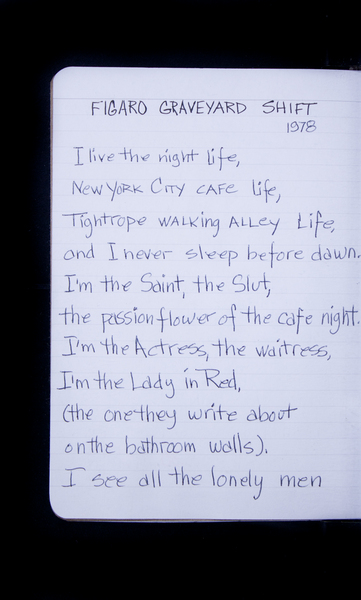 FIGARO GRAVEYARD SHIFT
1978
I live the night life,
New York City cafe life,
Tightrope walking Alley Life,
and I never sleep before dawn.
I'm the Saint, the Slut,
the passionflower of the cafe night.
I'm the Actress, the waitress,
I'm the Lady in Red,
(the one they write about
on the bathroom walls).
I see all the lonely men